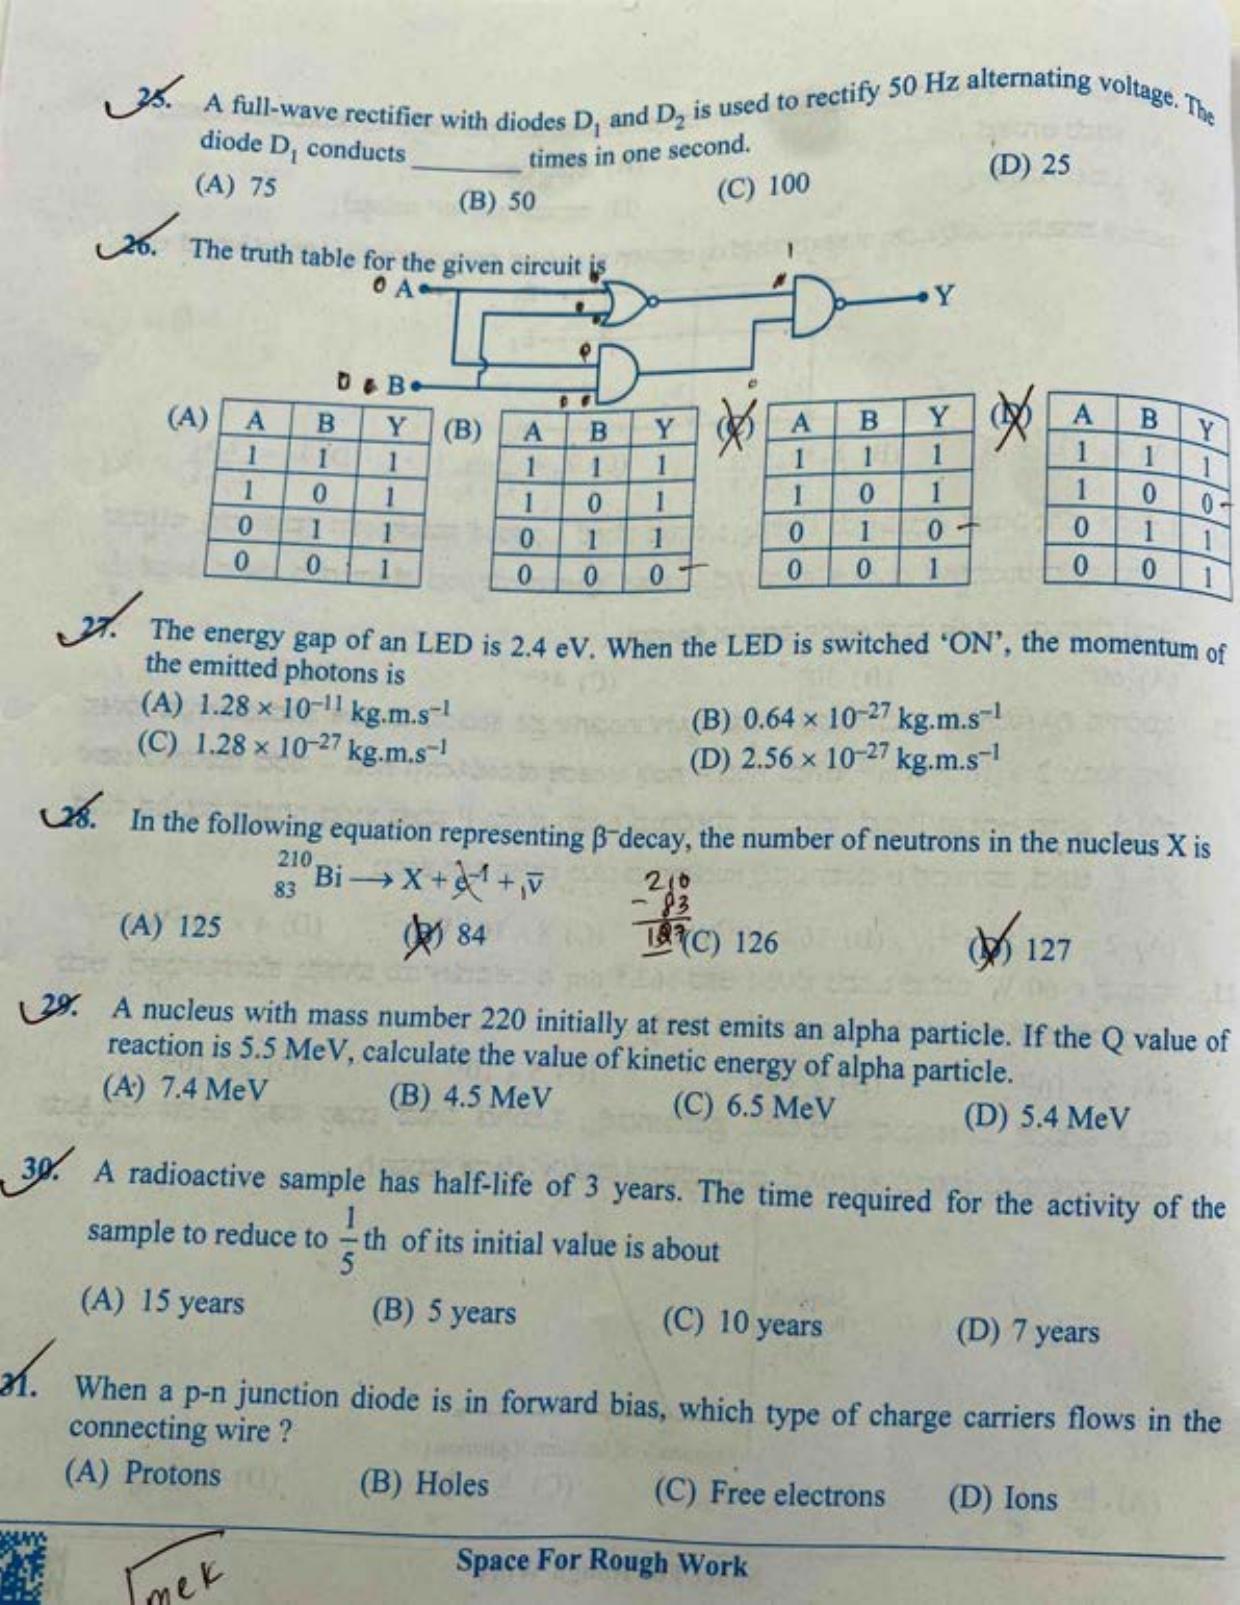 25. A full-wave rectifier with diodes D₁ and D₂ is used to rectify 50 Hz alternating voltage. The
diode D₁ conducts ________ times in one second.
(A) 75 (B) 50 (C) 100 (D) 25
26. The truth table for the given circuit is
0 A Y
1
0
0 B
0
(A) (B) (C) (D)
A B Y A B Y A B Y A B Y
1 1 1 1 1 1 1 1 1 1 1 1
1 0 1 1 0 1 1 0 1 1 0 0
0 1 1 0 1 1 0 1 0 0 1 1
0 0 1 0 0 0 0 0 1 0 0 1
27. The energy gap of an LED is 2.4 eV. When the LED is switched ‘ON’, the momentum of
the emitted photons is
(A) 1.28 × 10⁻¹¹ kg.m.s⁻¹ (B) 0.64 × 10⁻²⁷ kg.m.s⁻¹
(C) 1.28 × 10⁻²⁷ kg.m.s⁻¹ (D) 2.56 × 10⁻²⁷ kg.m.s⁻¹
28. In the following equation representing β⁻ decay, the number of neutrons in the nucleus X is
²¹⁰₈₃Bi ⟶ X + e⁻¹ + ν̅
210
- 83
127
(A) 125 (B) 84 (C) 126 (D) 127
29. A nucleus with mass number 220 initially at rest emits an alpha particle. If the Q value of
reaction is 5.5 MeV, calculate the value of kinetic energy of alpha particle.
(A) 7.4 MeV (B) 4.5 MeV (C) 6.5 MeV (D) 5.4 MeV
30. A radioactive sample has half-life of 3 years. The time required for the activity of the
sample to reduce to 1/5 th of its initial value is about
(A) 15 years (B) 5 years (C) 10 years (D) 7 years
31. When a p-n junction diode is in forward bias, which type of charge carriers flows in the
connecting wire ?
(A) Protons (B) Holes (C) Free electrons (D) Ions
Space For Rough Work
√mek